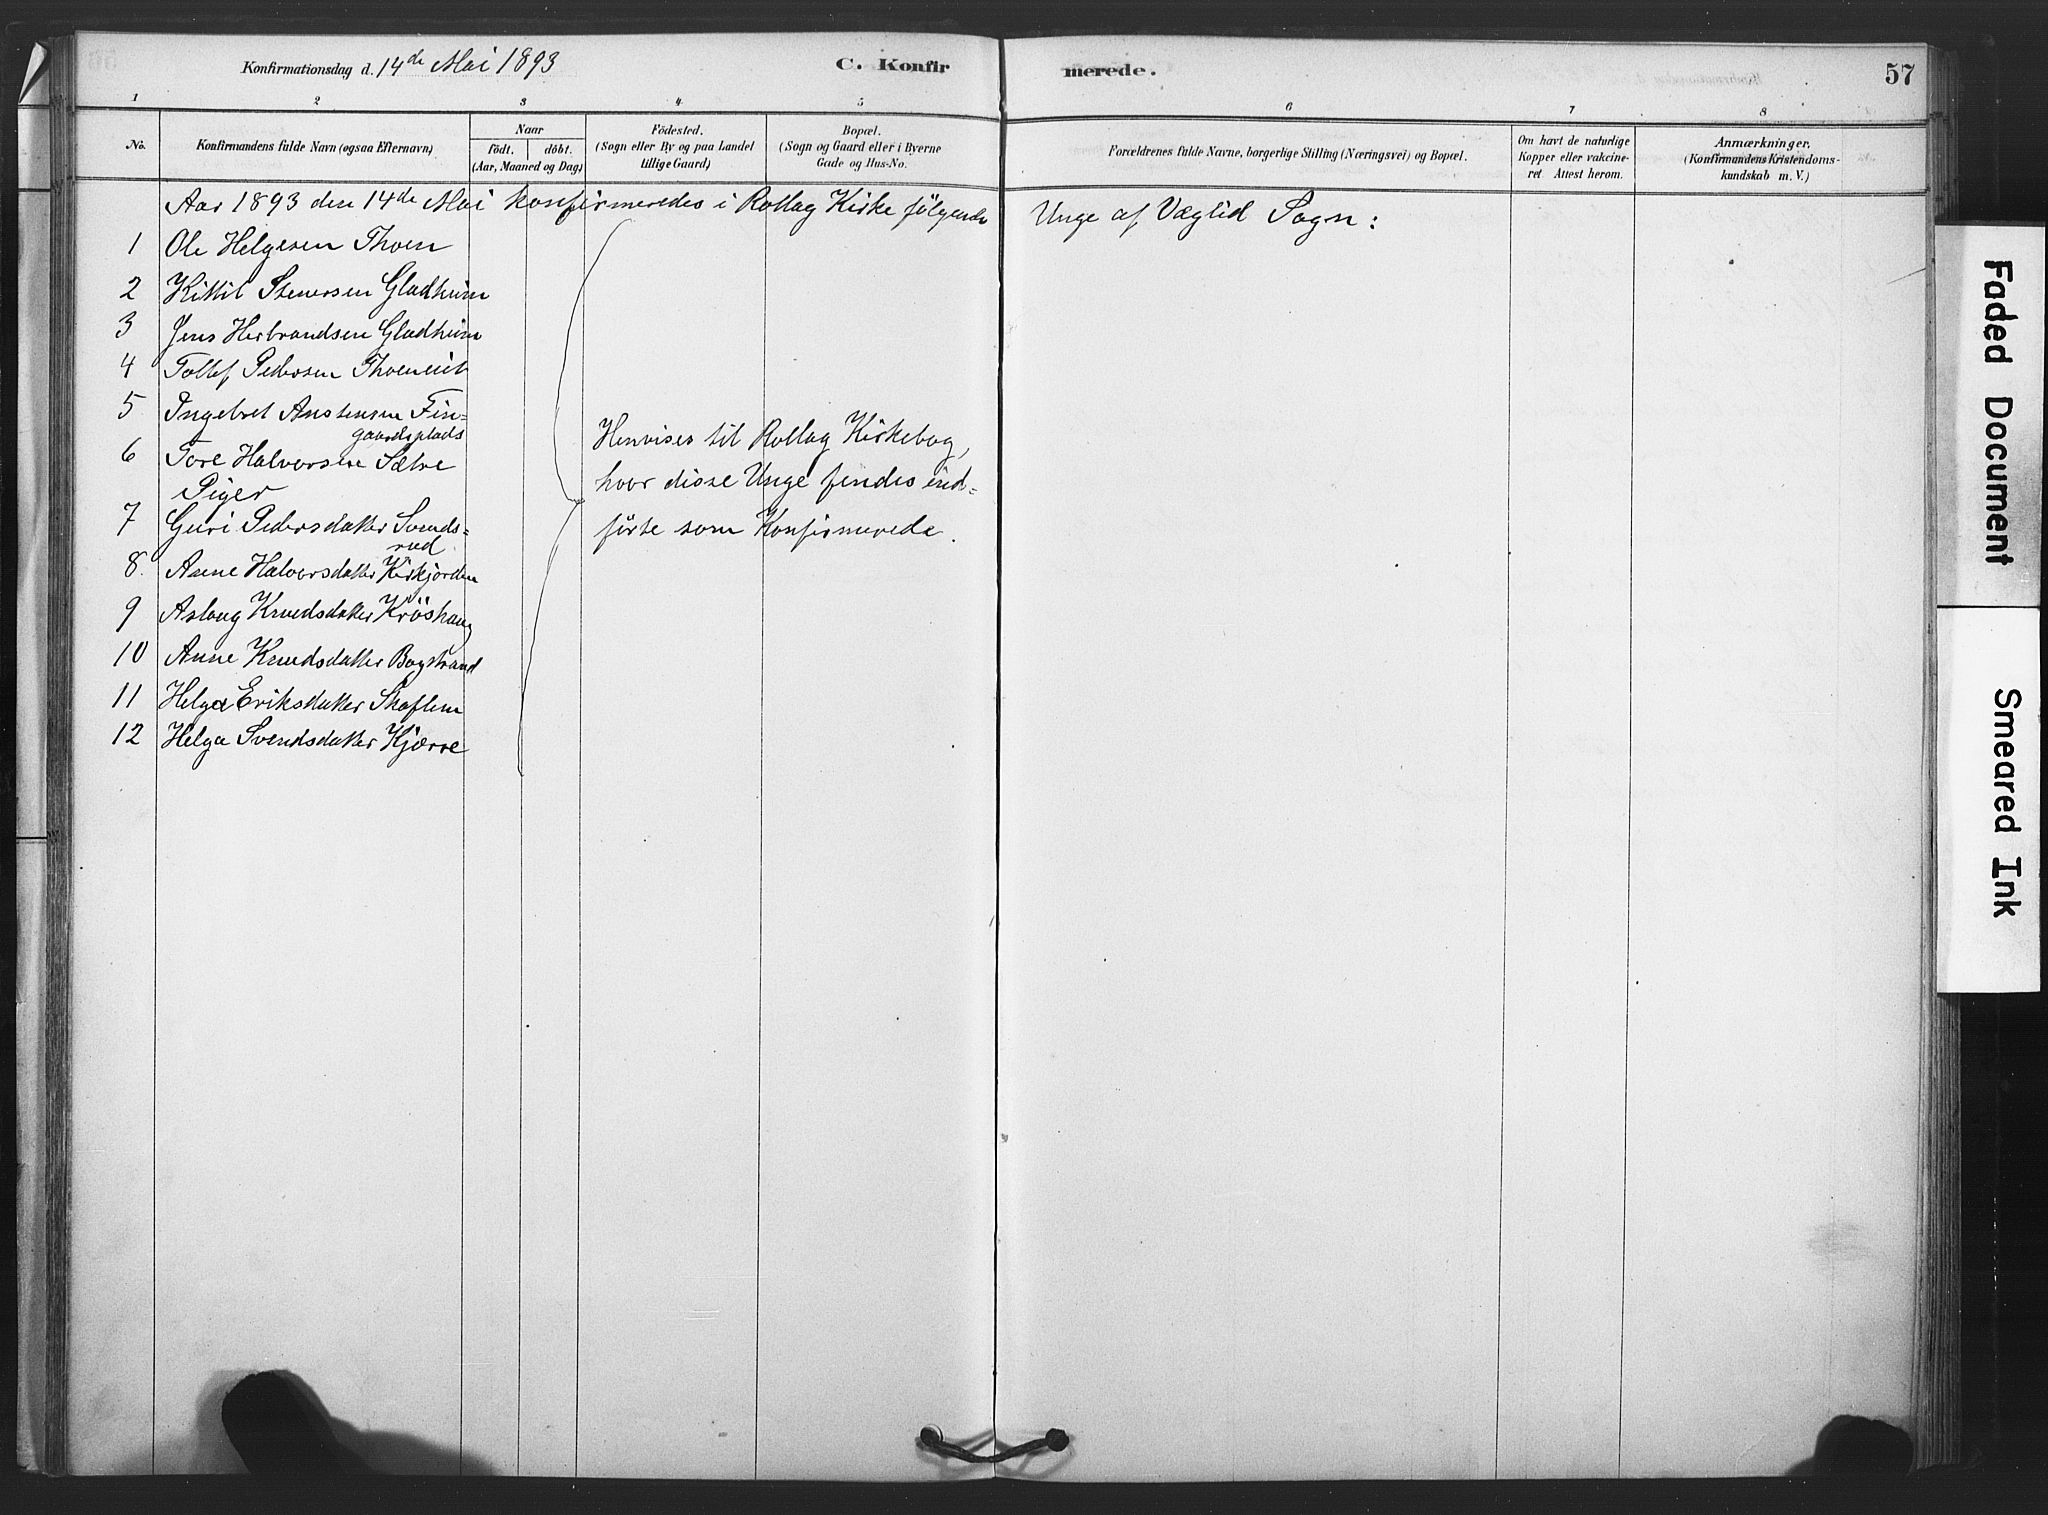 Konfirmationsdag d. 14de Mai 1893
C. Konfir
merede.
57
1
2
3
4
5
6
7
8
No.
Konfirmandens fulde Navn (ogsaa Efternavn)
Naar
födt. döbt.
(Aar, Maaned og Dag)
Födested.
(Sogn eller By og paa Landet
tillige Gaard)
Bopæl.
(Sogn og Gaard eller i Byerne
Gade og Hus-No.
Forældrenes fulde Navne, borgerlige Stilling (Næringsvei) og Bopæl.
Om havt de naturlige
Kopper eller vakcine-
ret Attest herom.
Anmærkninger.
(Konfirmandens Kristendoms-
kundskab m. V.)
Aar 1893 den 14de Mai konfirmeredes i Rollag Kirke følgende Unge af Væglid Sogn:
1 Ole Helgesen Thoen
2 Kittil Stenersen Gladheim
3 Jens Herbrandsen Gladheim
4 Tollef Pedersen Thoeneiet
5 Ingebret Anstensen Fin=
gaardsplads
6 Tore Halvorsen Sætre
Piger
7 Guri Pedersdatter Svends=
rud
8. Anne Halvorsdatter Kirkjorden
9 Aslaug Knudsdatter Kröshaug
10 Anne Knudsdatter Bogstrand
11 Helga Eriksdatter Skaflem
12 Helga Svendsdatter Kjærre
Henvises til Rollag Kirkebog,
hvor disse Unge findes ind=
førte som Konfirmerede.
Faded Document
Smeared Ink